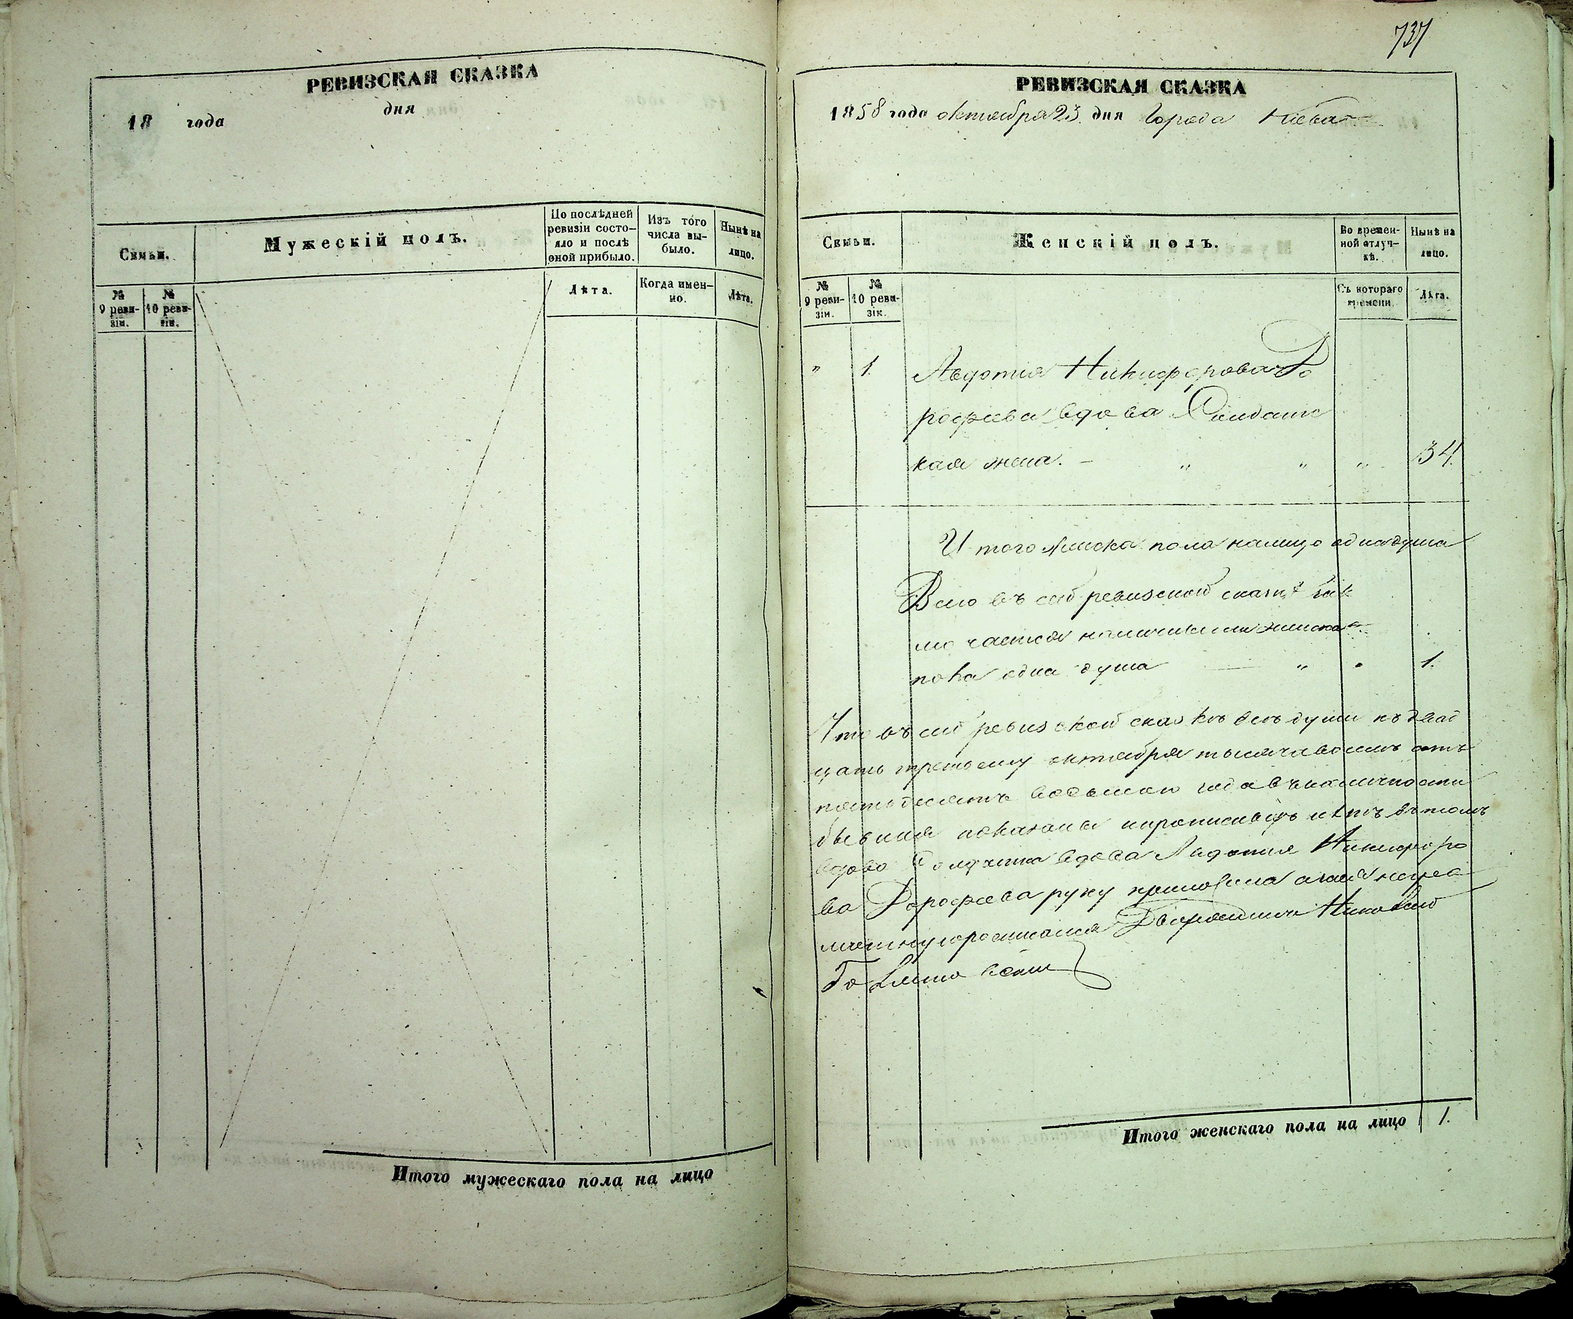 РЕВИЗСКАЯ СКАЗКА
18 года дня
Семьи.
Мужескій полъ.
По послѣдней ревизіи состояло и послѣ оной прибыло.
Изъ того числа выбыло.
Нынѣ на лицо.
№ 9 ревизіи.
№ 10 ревизіи.
Лѣта.
Когда именно.
Лѣта.
Итого мужескаго пола на лицо
737
РЕВИЗСКАЯ СКАЗКА
1858 года октября 23 дня Города Кіева
Семьи.
Женскій полъ.
Во временной отлучкѣ.
Нынѣ на лицо.
№ 9 ревизіи.
№ 10 ревизіи.
Съ котораго времени.
Лѣта.
" 1. Авдотия Никифорова До
рофеева вдова Солдатс
кая жена. - " " " 34.
Итого женска пола налицо одна душа
Всего въ сей ревизской сказкѣ
наличными женска
пола одна душа " " 1.
Что въ сей ревизской сказкѣ всѣ души къ двад
цать третьему октября тысяча восемъ сотъ
пятьдесятъ восьмого года въ наличности
бывшия показаны и прописныхъ нѣтъ въ томъ
вдова Авдотия Никифоро
ва Дорофеева руку приложила а за нея негра
мотную росписался Дворянинъ Николай
Итого женскаго пола на лицо 1.